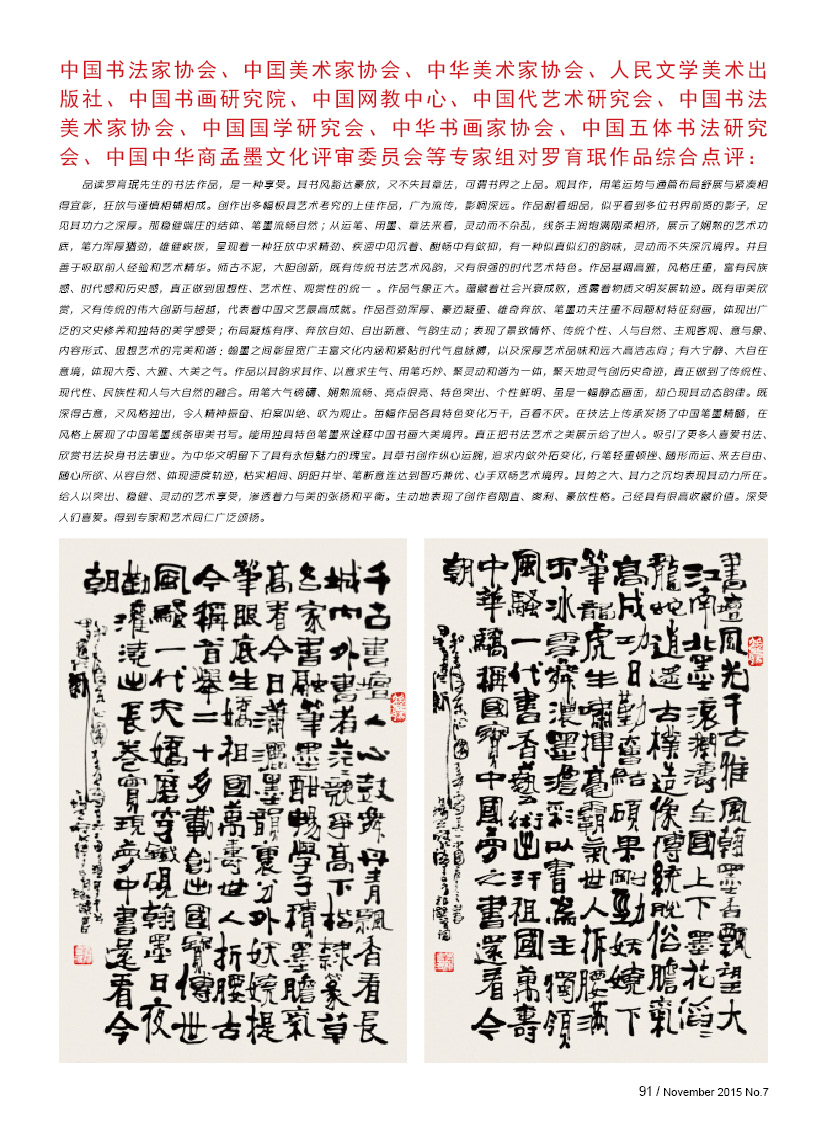 中国书法家协会、中国美术家协会、中华美术家协会、人民文学美术出
版社、中国书画研究院、中国网教中心、中国代艺术研究会、中国书法
美术家协会、中国国学研究会、中华书画家协会、中国五体书法研究
会、中国中华商孟墨文化评审委员会等专家组对罗育珉作品综合点评：
品读罗育珉先生的书法作品，是一种享受。其书风豁达豪放，又不失其章法，可谓书界之上品。观其作，用笔运势与通篇布局舒展与紧凑相
得宜彰，狂放与谨慎相辅相成。创作出多幅极具艺术考究的上佳作品，广为流传，影响深远。作品耐看细品，似乎看到多位书界前贤的影子，足
见其功力之深厚。那稳健端庄的结体、笔墨流畅自然；从运笔、用墨、章法来看，灵动而不杂乱，线条丰润饱满刚柔相济，展示了娴熟的艺术功
底，笔力浑厚猶劲，雄健峻拔，呈现着一种狂放中求精劲、疾速中见沉着、酣畅中有敛抑，有一种似真似幻的韵味，灵动而不失深沉境界。并且
善于吸取前人经验和艺术精华。师古不泥，大胆创新，既有传统书法艺术风韵，又有很强的时代艺术特色。作品基调高雅，风格庄重，富有民族
感、时代感和历史感，真正做到思想性、艺术性、观赏性的统一 。作品气象正大。蕴藏着社会兴衰成败，透露着物质文明发展轨迹。既有审美欣
赏，又有传统的伟大创新与超越，代表着中国文艺最高成就。作品苍劲浑厚、豪迈凝重、雄奇奔放、笔墨功夫注重不同题材特征刻画，体现出广
泛的文史修养和独特的美学感受；布局凝炼有序、奔放自如、自出新意、气韵生动；表现了景致情怀、传统个性、人与自然、主观客观、意与象、
内容形式、思想艺术的完美和谐；翰墨之间彰显宽广丰富文化内涵和紧贴时代气息脉膊，以及深厚艺术品味和远大高洁志向；有大宁静、大自在
意境，体现大秀、大雅、大美之气。作品以其韵求其作、以意求生气、用笔巧妙、聚灵动和谐为一体，聚天地灵气创历史奇迹，真正做到了传统性、
现代性、民族性和人与大自然的融合。用笔大气磅礴、娴熟流畅、亮点很亮、特色突出、个性鲜明、虽是一幅静态画面，却凸现其动态韵律。既
深得古意，又风格独出，令人精神振奋、拍案叫绝、叹为观止。每幅作品各具特色变化万千，百看不厌。在技法上传承发扬了中国笔墨精髓，在
风格上展现了中国笔墨线条审美书写。能用独具特色笔墨来诠释中国书画大美境界。真正把书法艺术之美展示给了世人。吸引了更多人喜爱书法、
欣赏书法投身书法事业。为中华文明留下了具有永恒魅力的瑰宝。其草书创作纵心运腕，追求内敛外拓变化，行笔轻重顿挫、随形而运、来去自由、
随心所欲、从容自然、体现速度轨迹，枯实相间、阴阳并举、笔断意连达到智巧兼优、心手双畅艺术境界。其势之大、其力之沉均表现其动力所在。
给人以突出、稳健、灵动的艺术享受，渗透着力与美的张扬和平衡。生动地表现了创作者刚直、爽利、豪放性格。己经具有很高收藏价值。深受
人们喜爱。得到专家和艺术同仁广泛颂扬。
千古書壇人心鼓舞丹青飄香看長
城内外書者花歌爭高下楷隸篆草
名家書融筆墨酣暢學子積墨膽氣
高看今日瀟灑墨韻裏分外妖嬈提
筆眼底生嬌祖國萬壽世人折腰古
今稱首舉二十多載創出國寶傳世
風騷一代天嬌磨穿鐵硯翰墨日夜
勤灌澆出長卷實現夢中書還看今
朝
書壇風光千古雅風翰墨香飄望大
江南北墨滾潮濤全國上下墨花滔
龍蛇逍遥古樸造像傳統脱俗膽氣
高成功日勤奮結碩果剛勁妖嬈下
筆龍虎生嘯揮毫霸氣世人折腰滿
風騷一代書香藝術出汗祖國萬壽
中華驕稱國寶中國夢之書還看今
朝
91 / November 2015 No.7